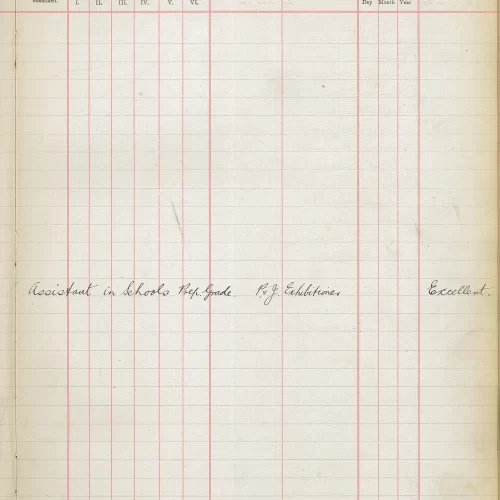 I. II. III. IV. V. VI. Day Month Year
Assistant in Schools Prep. Grade. P. & J. Exhibitioner Excellent.